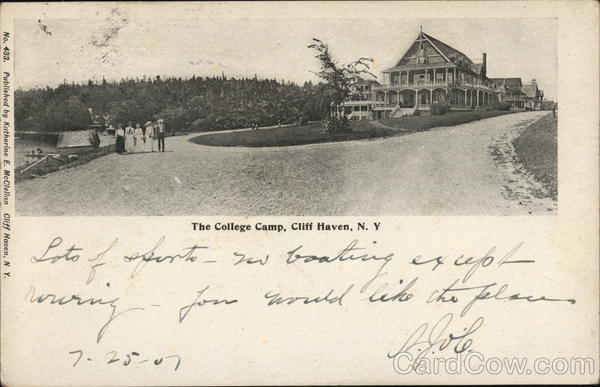 No. 433. Published by Katherine E. McClellan Cliff Haven, N. Y.
The College Camp, Cliff Haven, N. Y
Lots of sports - no boating except
rowing - You would like the place
7-25-07
CardCow.com